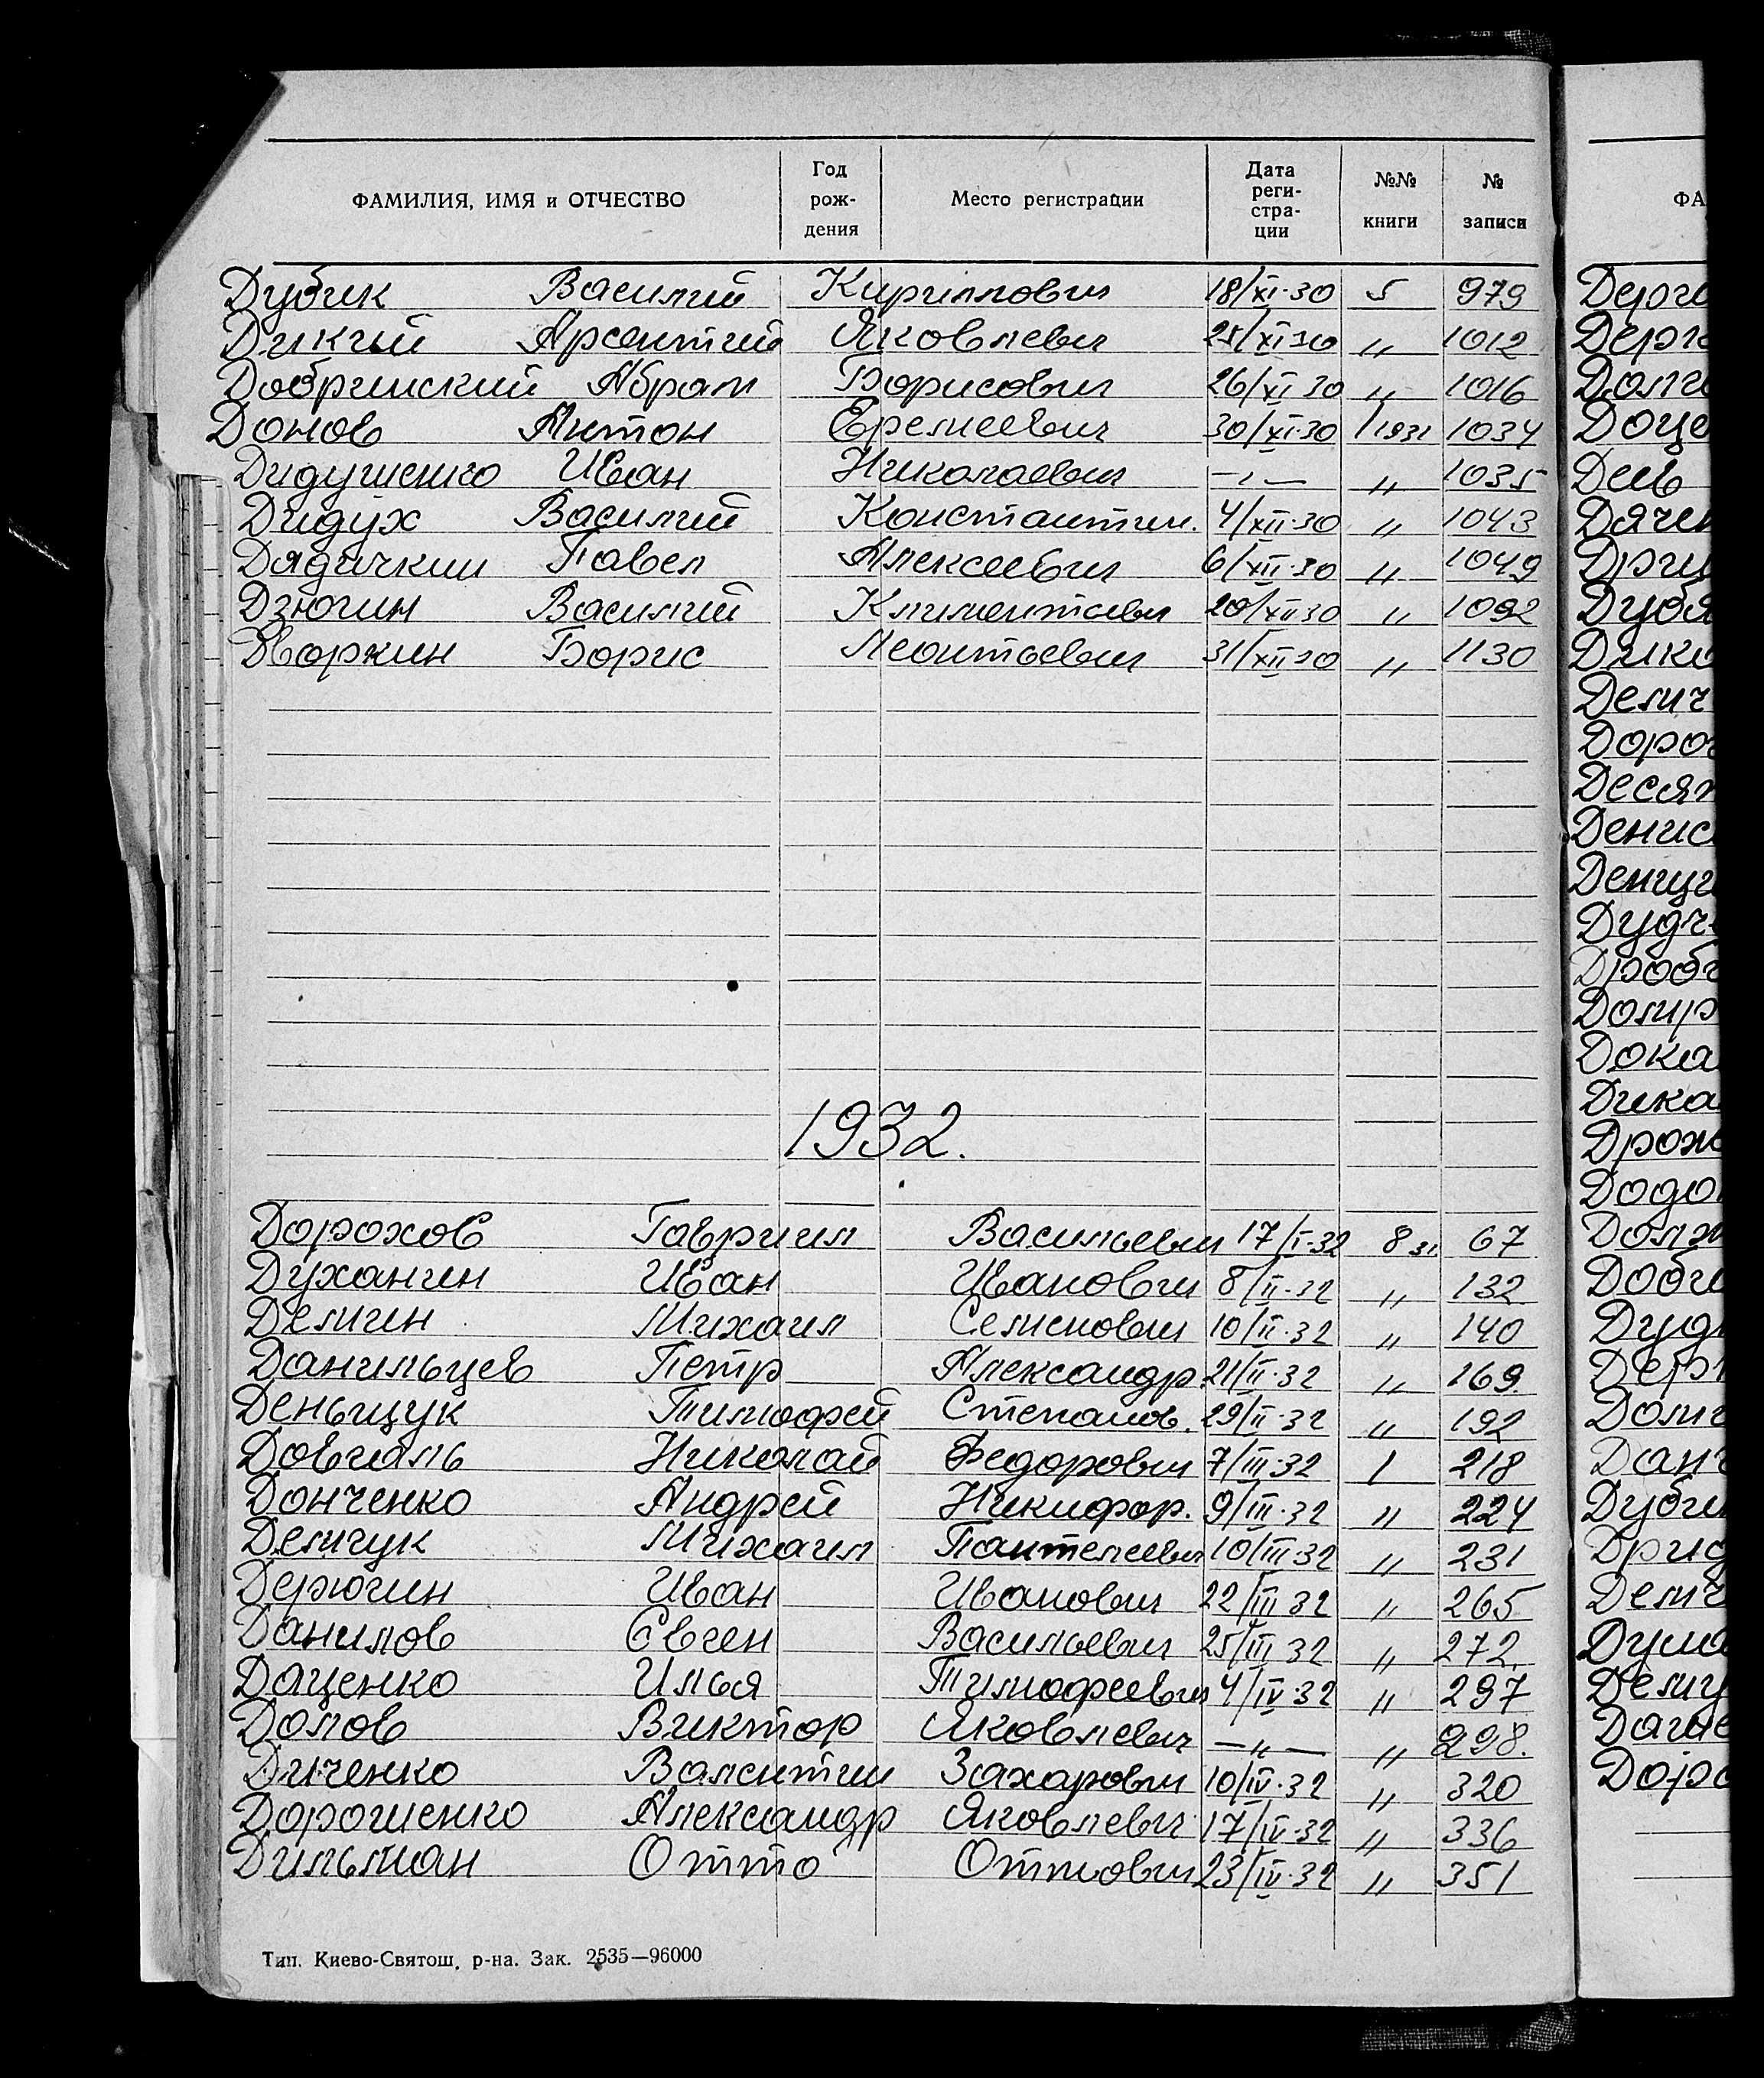 ФАМИЛИЯ, ИМЯ и ОТЧЕСТВО Год рож- дения Место регистрации Дата реги- стра- ции №№ книги № записи ФА
Дубик Василий Кириллович 18/XI-30 5 979
Дикий Арсентий Яковлевич 25/XI 30 „ 1012
Добринский Абрам Борисович 26/XI 30 „ 1016
Донов Антон Еремеевич 30/XI-30 1/1931 1034
Дидушенко Иван Николаевич —„— „ 1035
Дидух Василий Константин. 4/XII-30 „ 1043
Дядичкин Павел Алексеевич 6/XII-30 „ 1049
Дзюгин Василий Климентьевич 20/XII 30 „ 1092
Дворкин Борис Леонтьевич 31/XII-30 „ 1130
1932.
Дорохов Гавриил Васильевич 17/I-32 8 31 67
Духанин Иван Иванович 8/II-32 „ 132
Демин Михаил Семенович 10/II-32 „ 140
Данильцев Петр Александр. 21/II-32 „ 169
Деньщук Тимофей Степанов. 29/II-32 „ 192
Довгаль Николай Федорович 7/III-32 1 218
Донченко Андрей Никифор. 9/III-32 „ 224
Демчук Михаил Пантелеевич 10/III 32 „ 231
Дерюгин Иван Иванович 22/III 32 „ 265
Данилов Евген Васильевич 25/III 32 „ 272.
Даценко Илья Тимофеевич 4/IV-32 „ 297
Долов Виктор Яковлевич —„— „ 298.
Диченко Валентин Захарович 10/IV-32 „ 320
Дорошенко Александр Яковлевич 17/IV-32 „ 336
Дильман Отто Оттович 23/IV-32 „ 351
Тип. Киево-Святош. р-на. Зак. 2535—96000